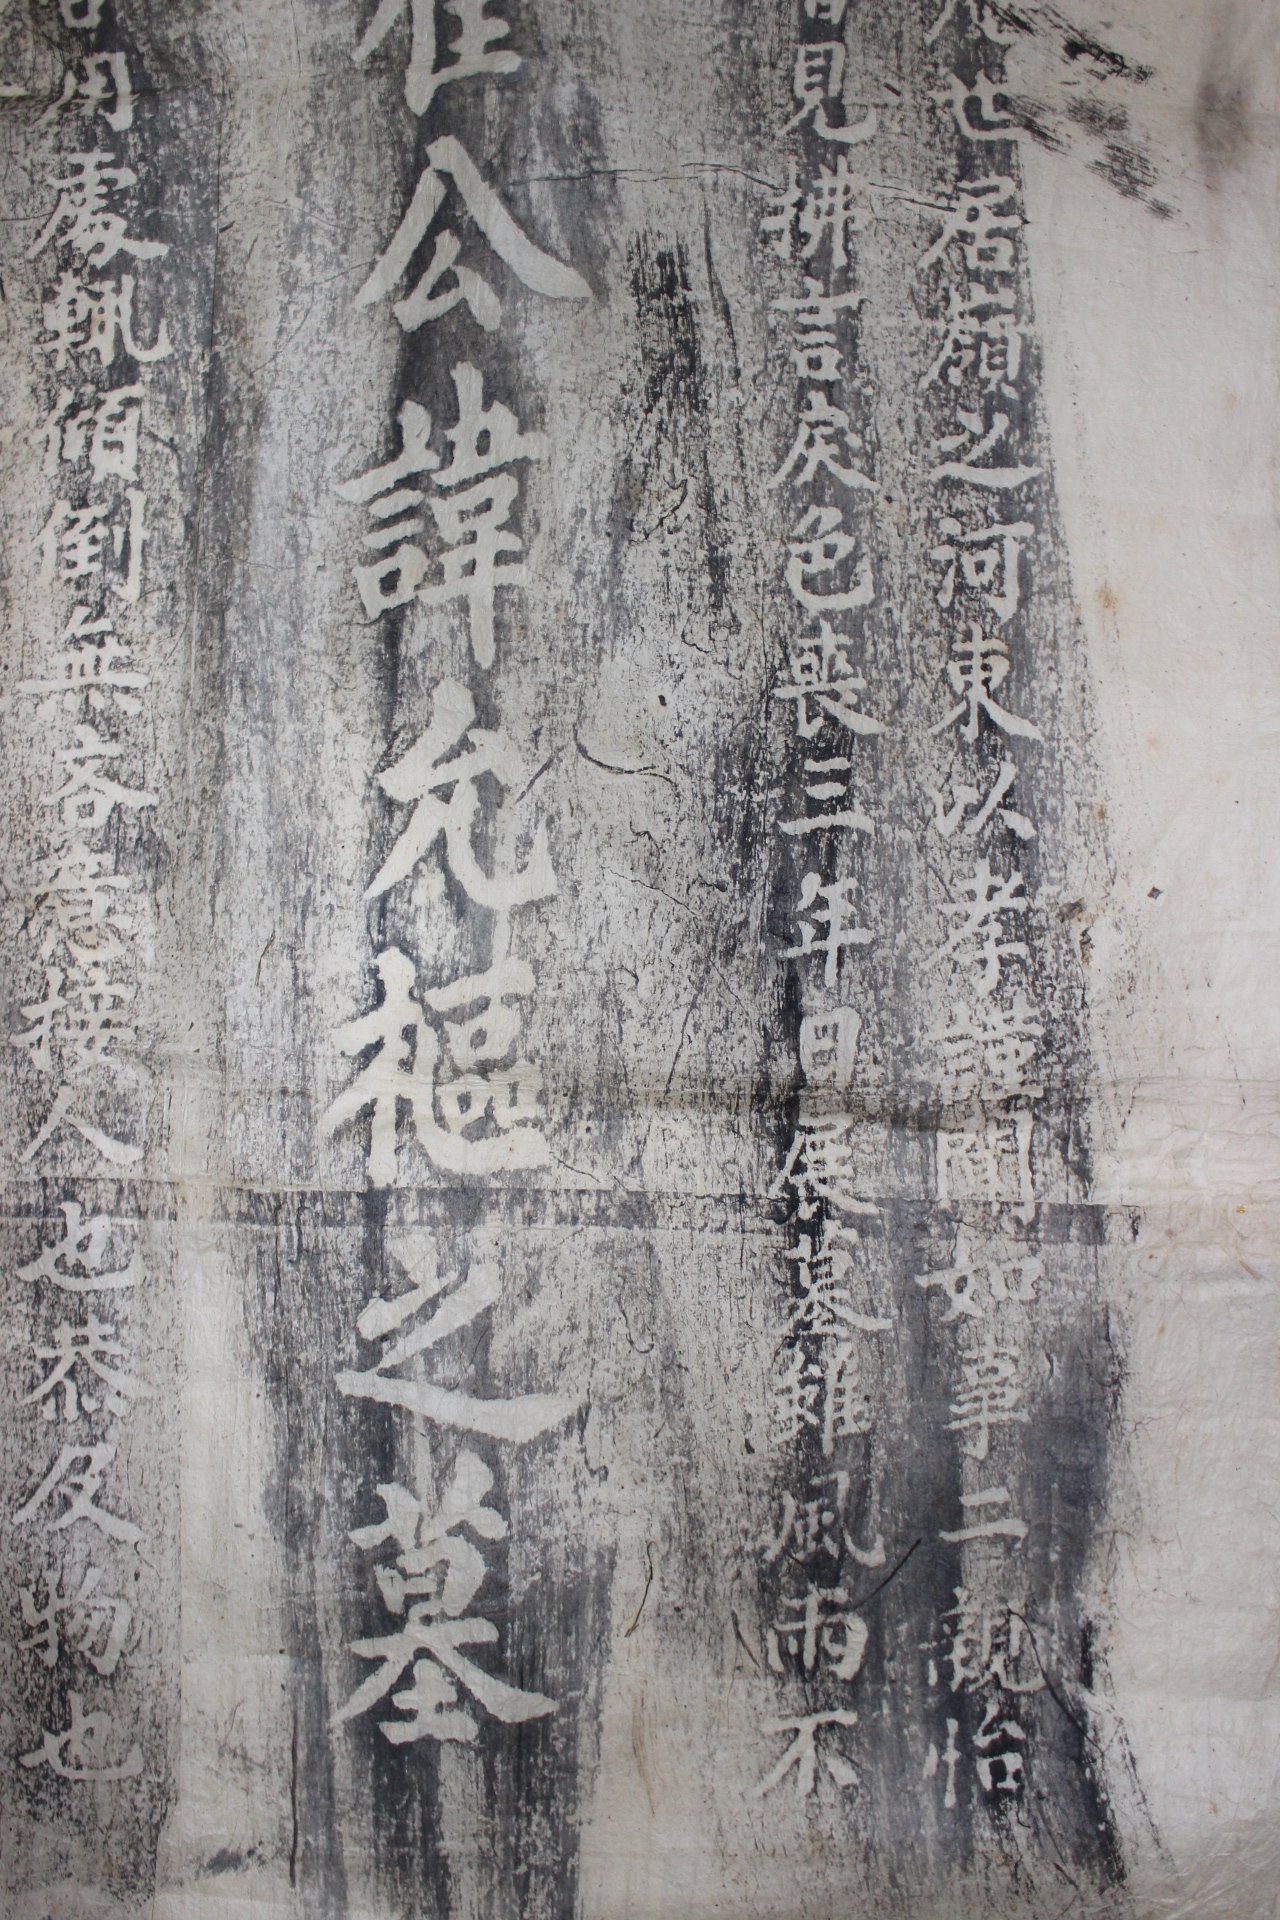 世居嶺之河東以孝謹聞如事二親怡
見拂言戾色喪三年日展墓雖風雨不
公諱允樞之墓
用處輒傾倒無吝意擇人也恭及物也